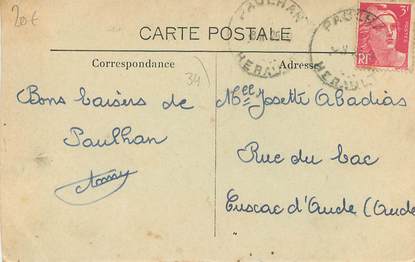 20€
CARTE POSTALE
PAULHAN
HERAULT
PAULH
HERAUL
3F
RF
Correspondance
Adresse
34)
Bons baisers de
Paulhan
Melle Josette Abadias
Rue du Lac
Cuscac d'Aude (Aude